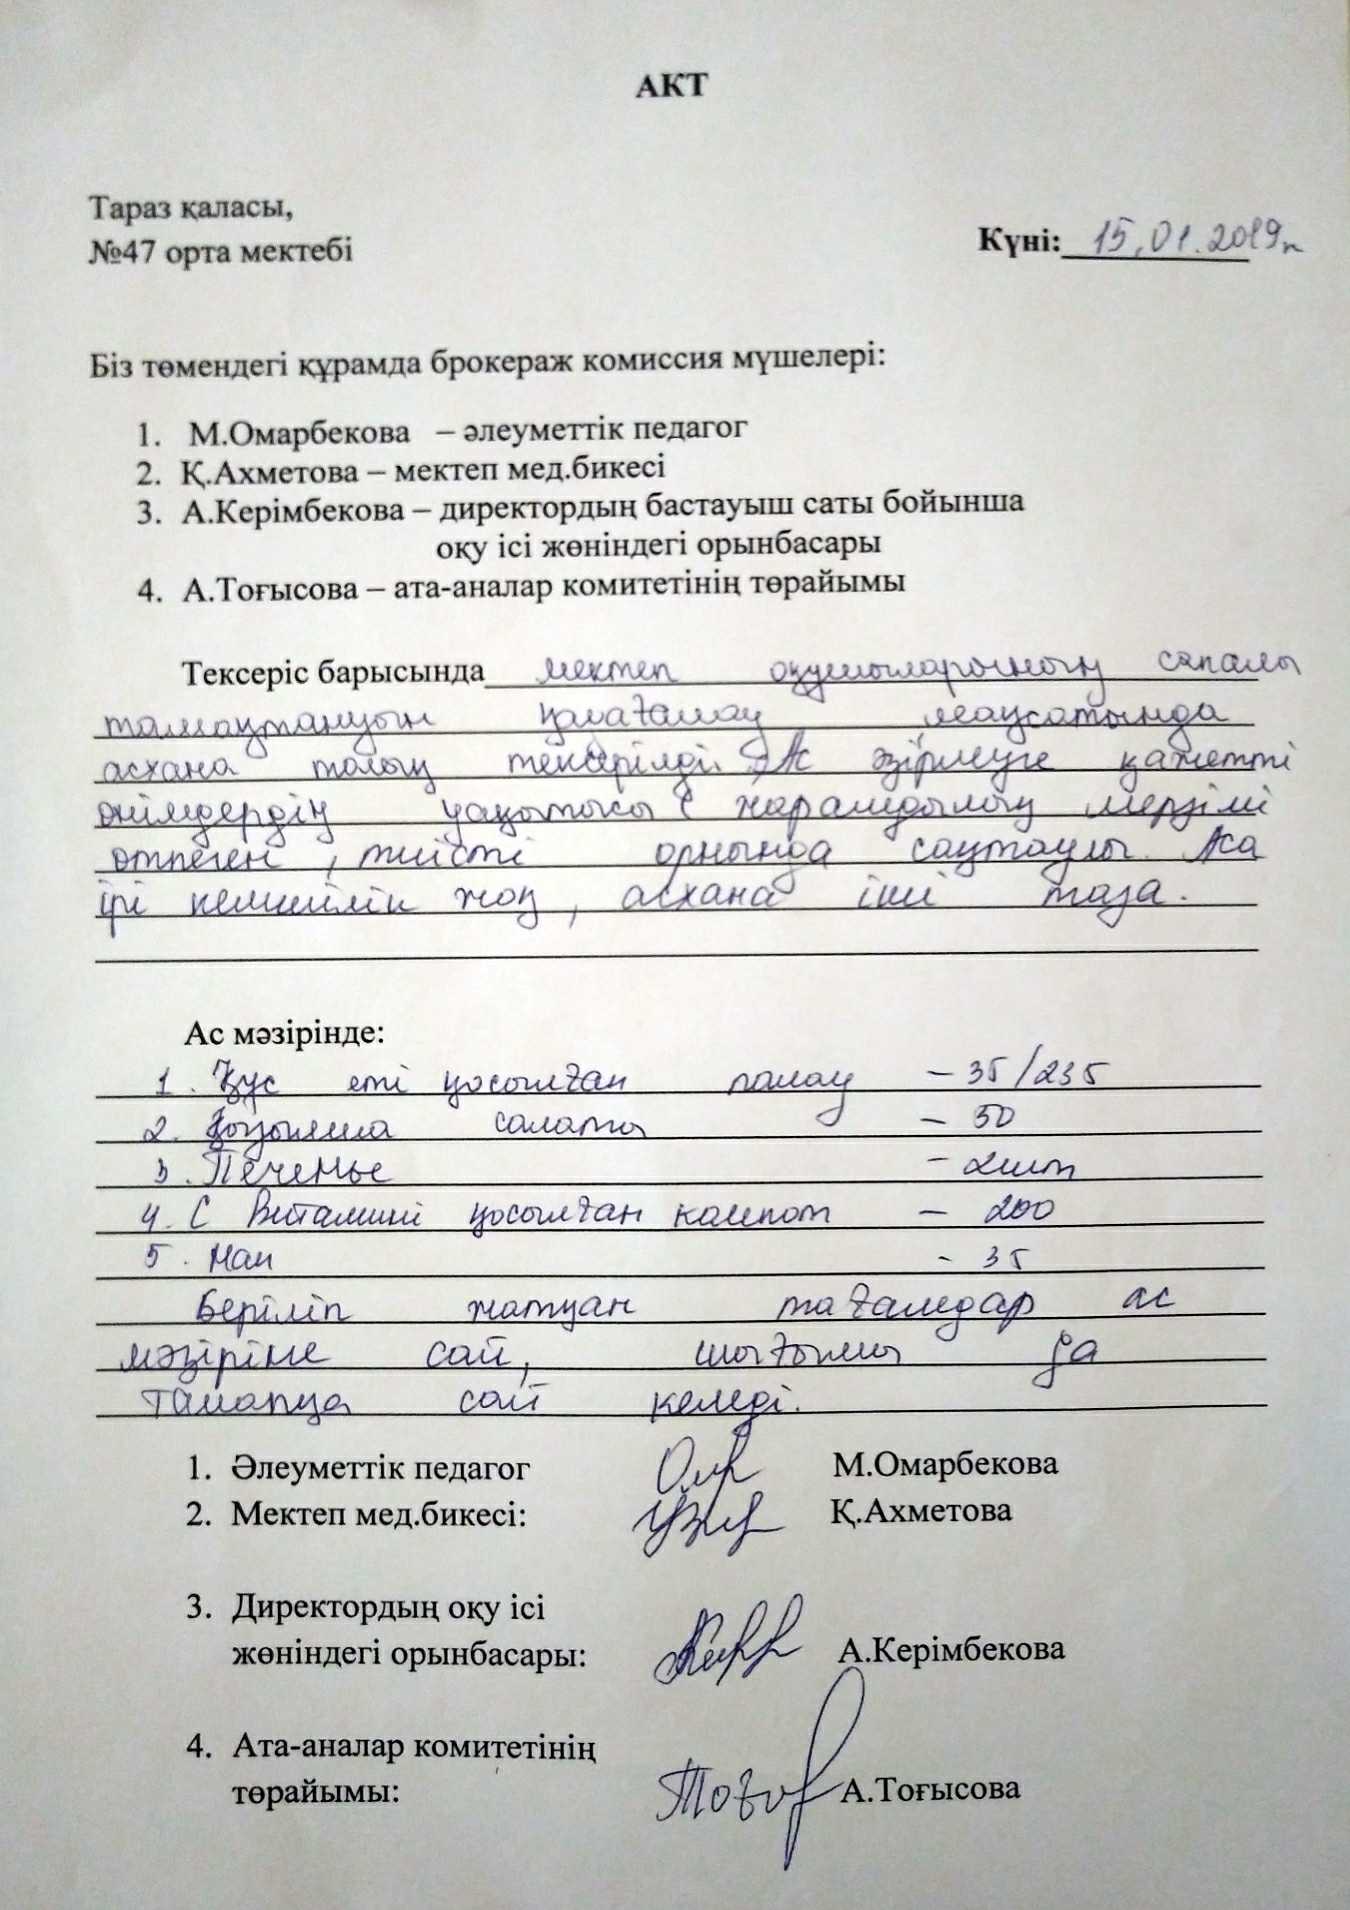 АКТ
Тараз қаласы,
№47 орта мектебі
Күні: 15.01.2019ж
Біз төмендегі құрамда брокераж комиссия мүшелері:
1. М.Омарбекова – әлеуметтік педагог
2. Қ.Ахметова – мектеп мед.бикесі
3. А.Керімбекова – директордың бастауыш саты бойынша
оқу ісі жөніндегі орынбасары
4. А.Тоғысова – ата-аналар комитетінің төрайымы
Тексеріс барысында мектеп оқушыларының сапалы
тамақтануын қадағалау мақсатында
асхана толық тексерілді. Ас әзірлеуге қажетті
өнімдердің уақытысы жарамдылық мерзімі
өтпеген, тиісті орнында сақтаулы.
ірі кемшілік жоқ, асхана іші таза.
Ас мәзірінде:
1. Құс еті қосылған палау – 35/235
2. Қызылша салаты – 50
3. Печенье – 2шт
4. С Витамині қосылған компот – 200
5. Нан - 35
Беріліп жатқан тағамдар ас
мәзіріне сай, шығымы да
талапқа сай келеді.
1. Әлеуметтік педагог М.Омарбекова
2. Мектеп мед.бикесі: Қ.Ахметова
3. Директордың оқу ісі
жөніндегі орынбасары: А.Керімбекова
4. Ата-аналар комитетінің
төрайымы: А.Тоғысова